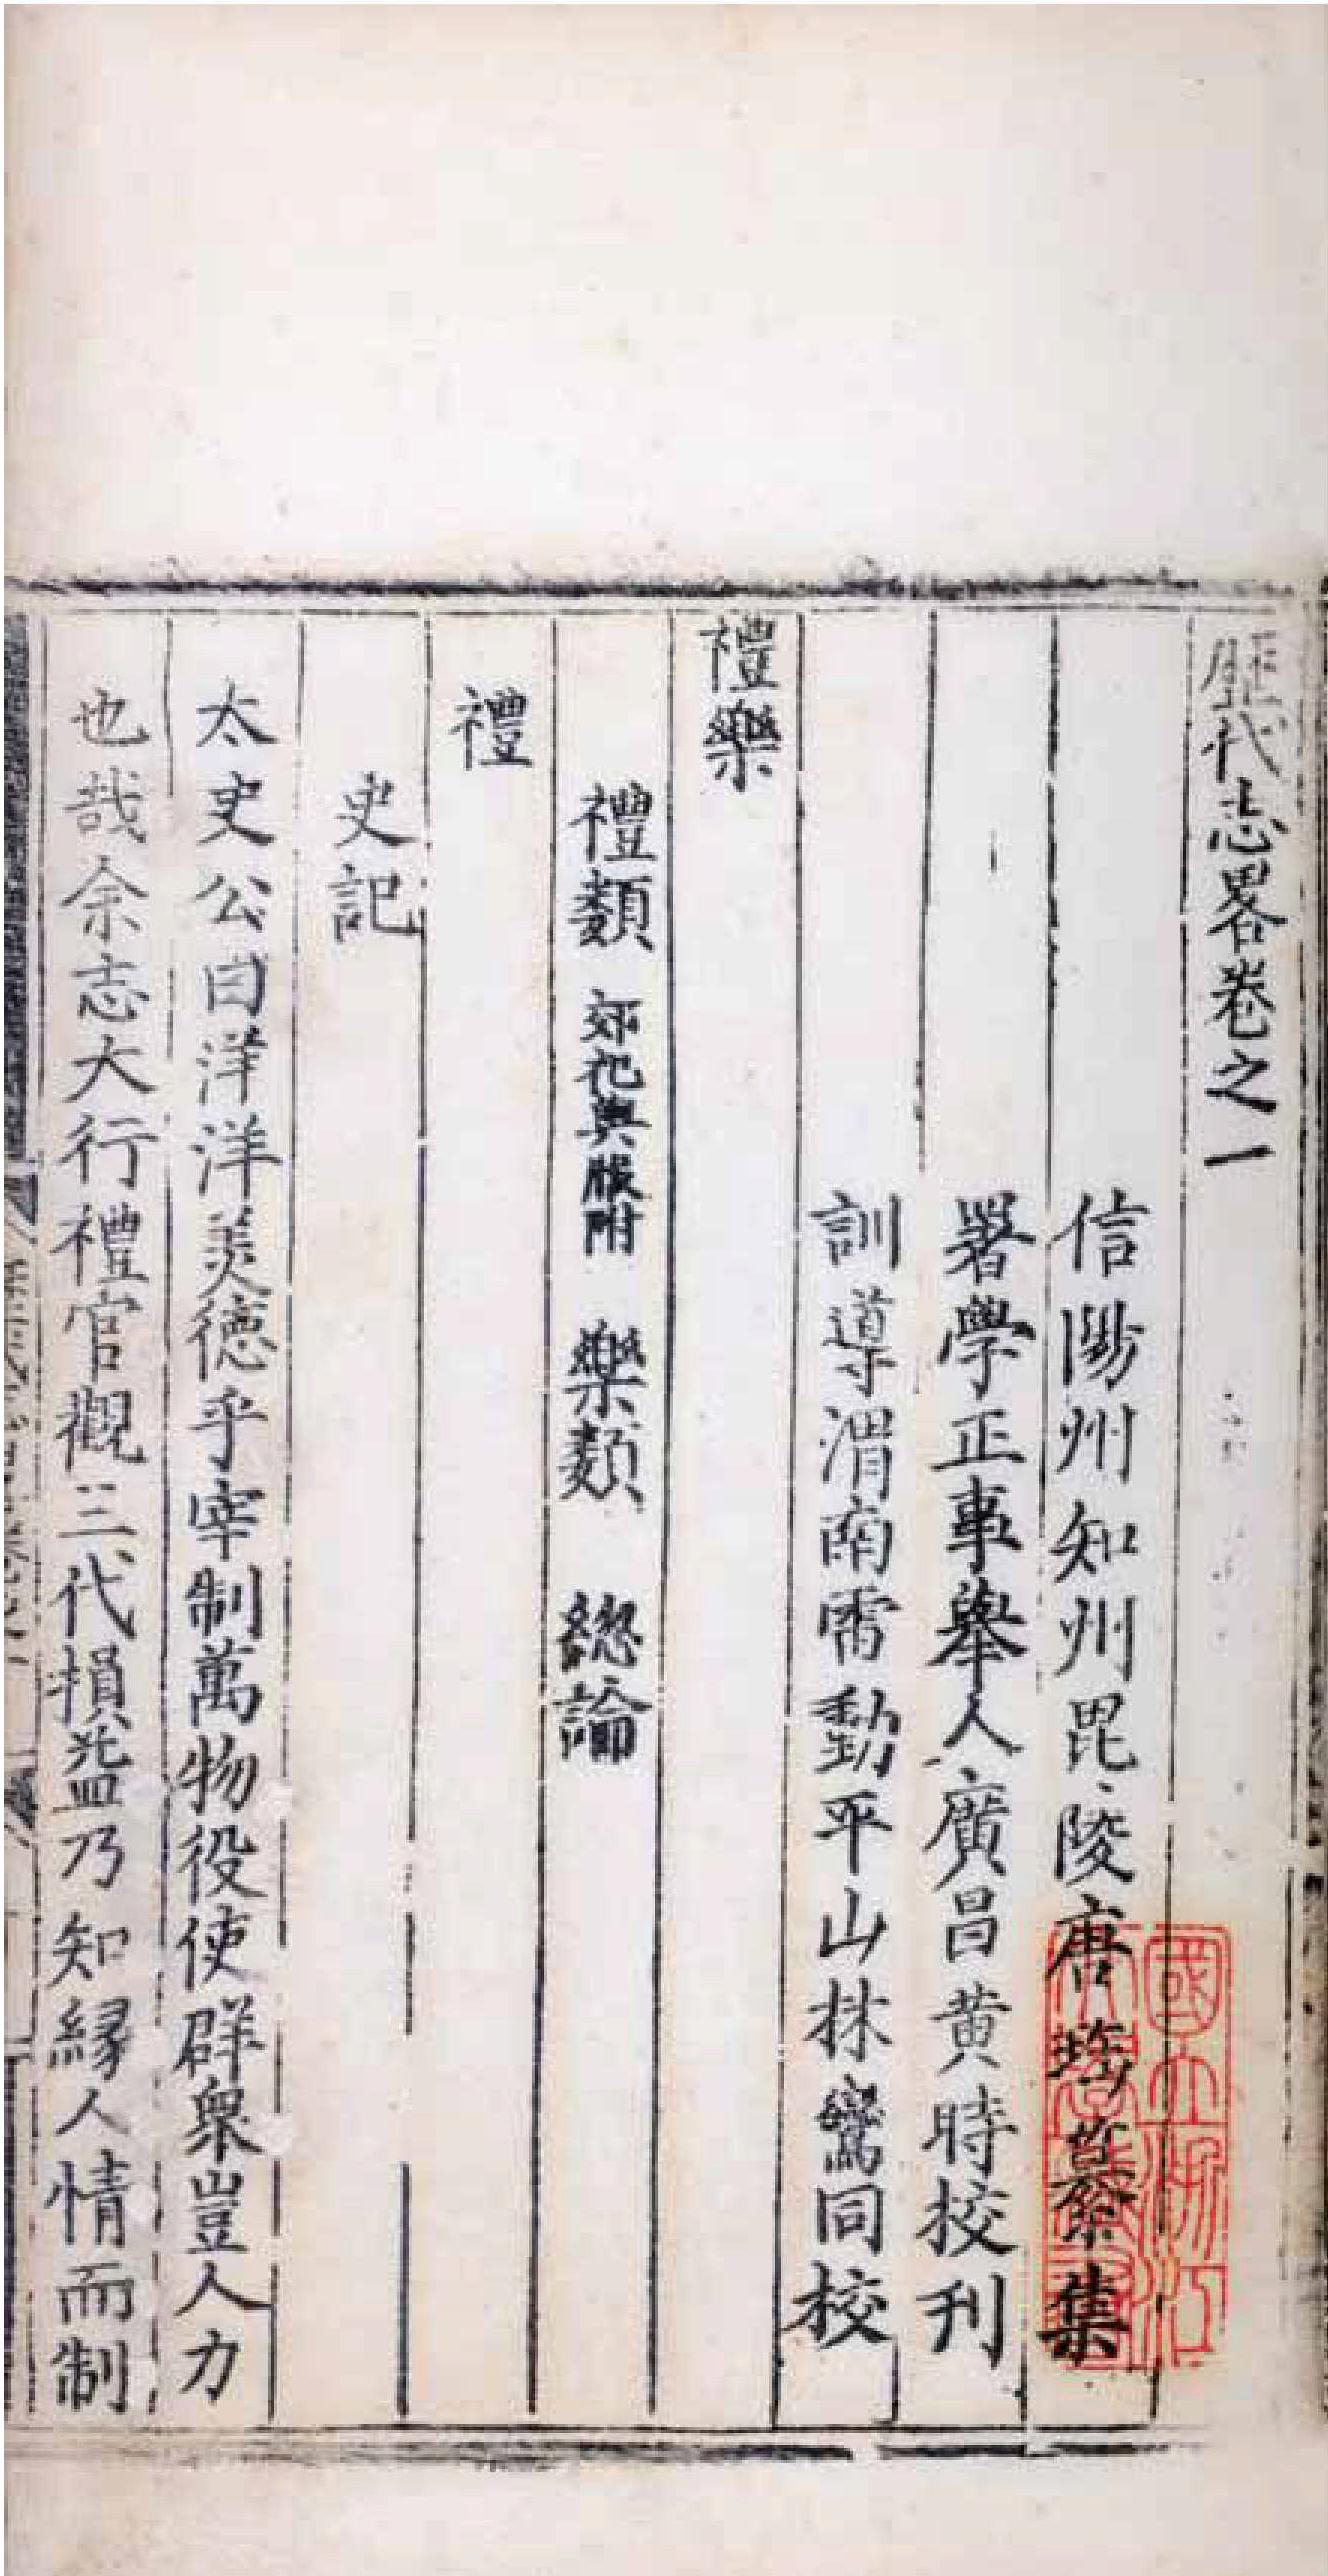 歷代志畧卷之一
信陽州知州毘陵唐珤纂集
署學正事舉人廣昌黄時校刊
訓導渭南雷動平山林鸞同校
禮樂
禮類 郊祀輿服附 樂類 總論
禮
史記
太史公曰洋洋美德乎宰制萬物役使群衆豈人力
也哉余志大行禮官觀三代損益乃知縁人情而制
國立浙江